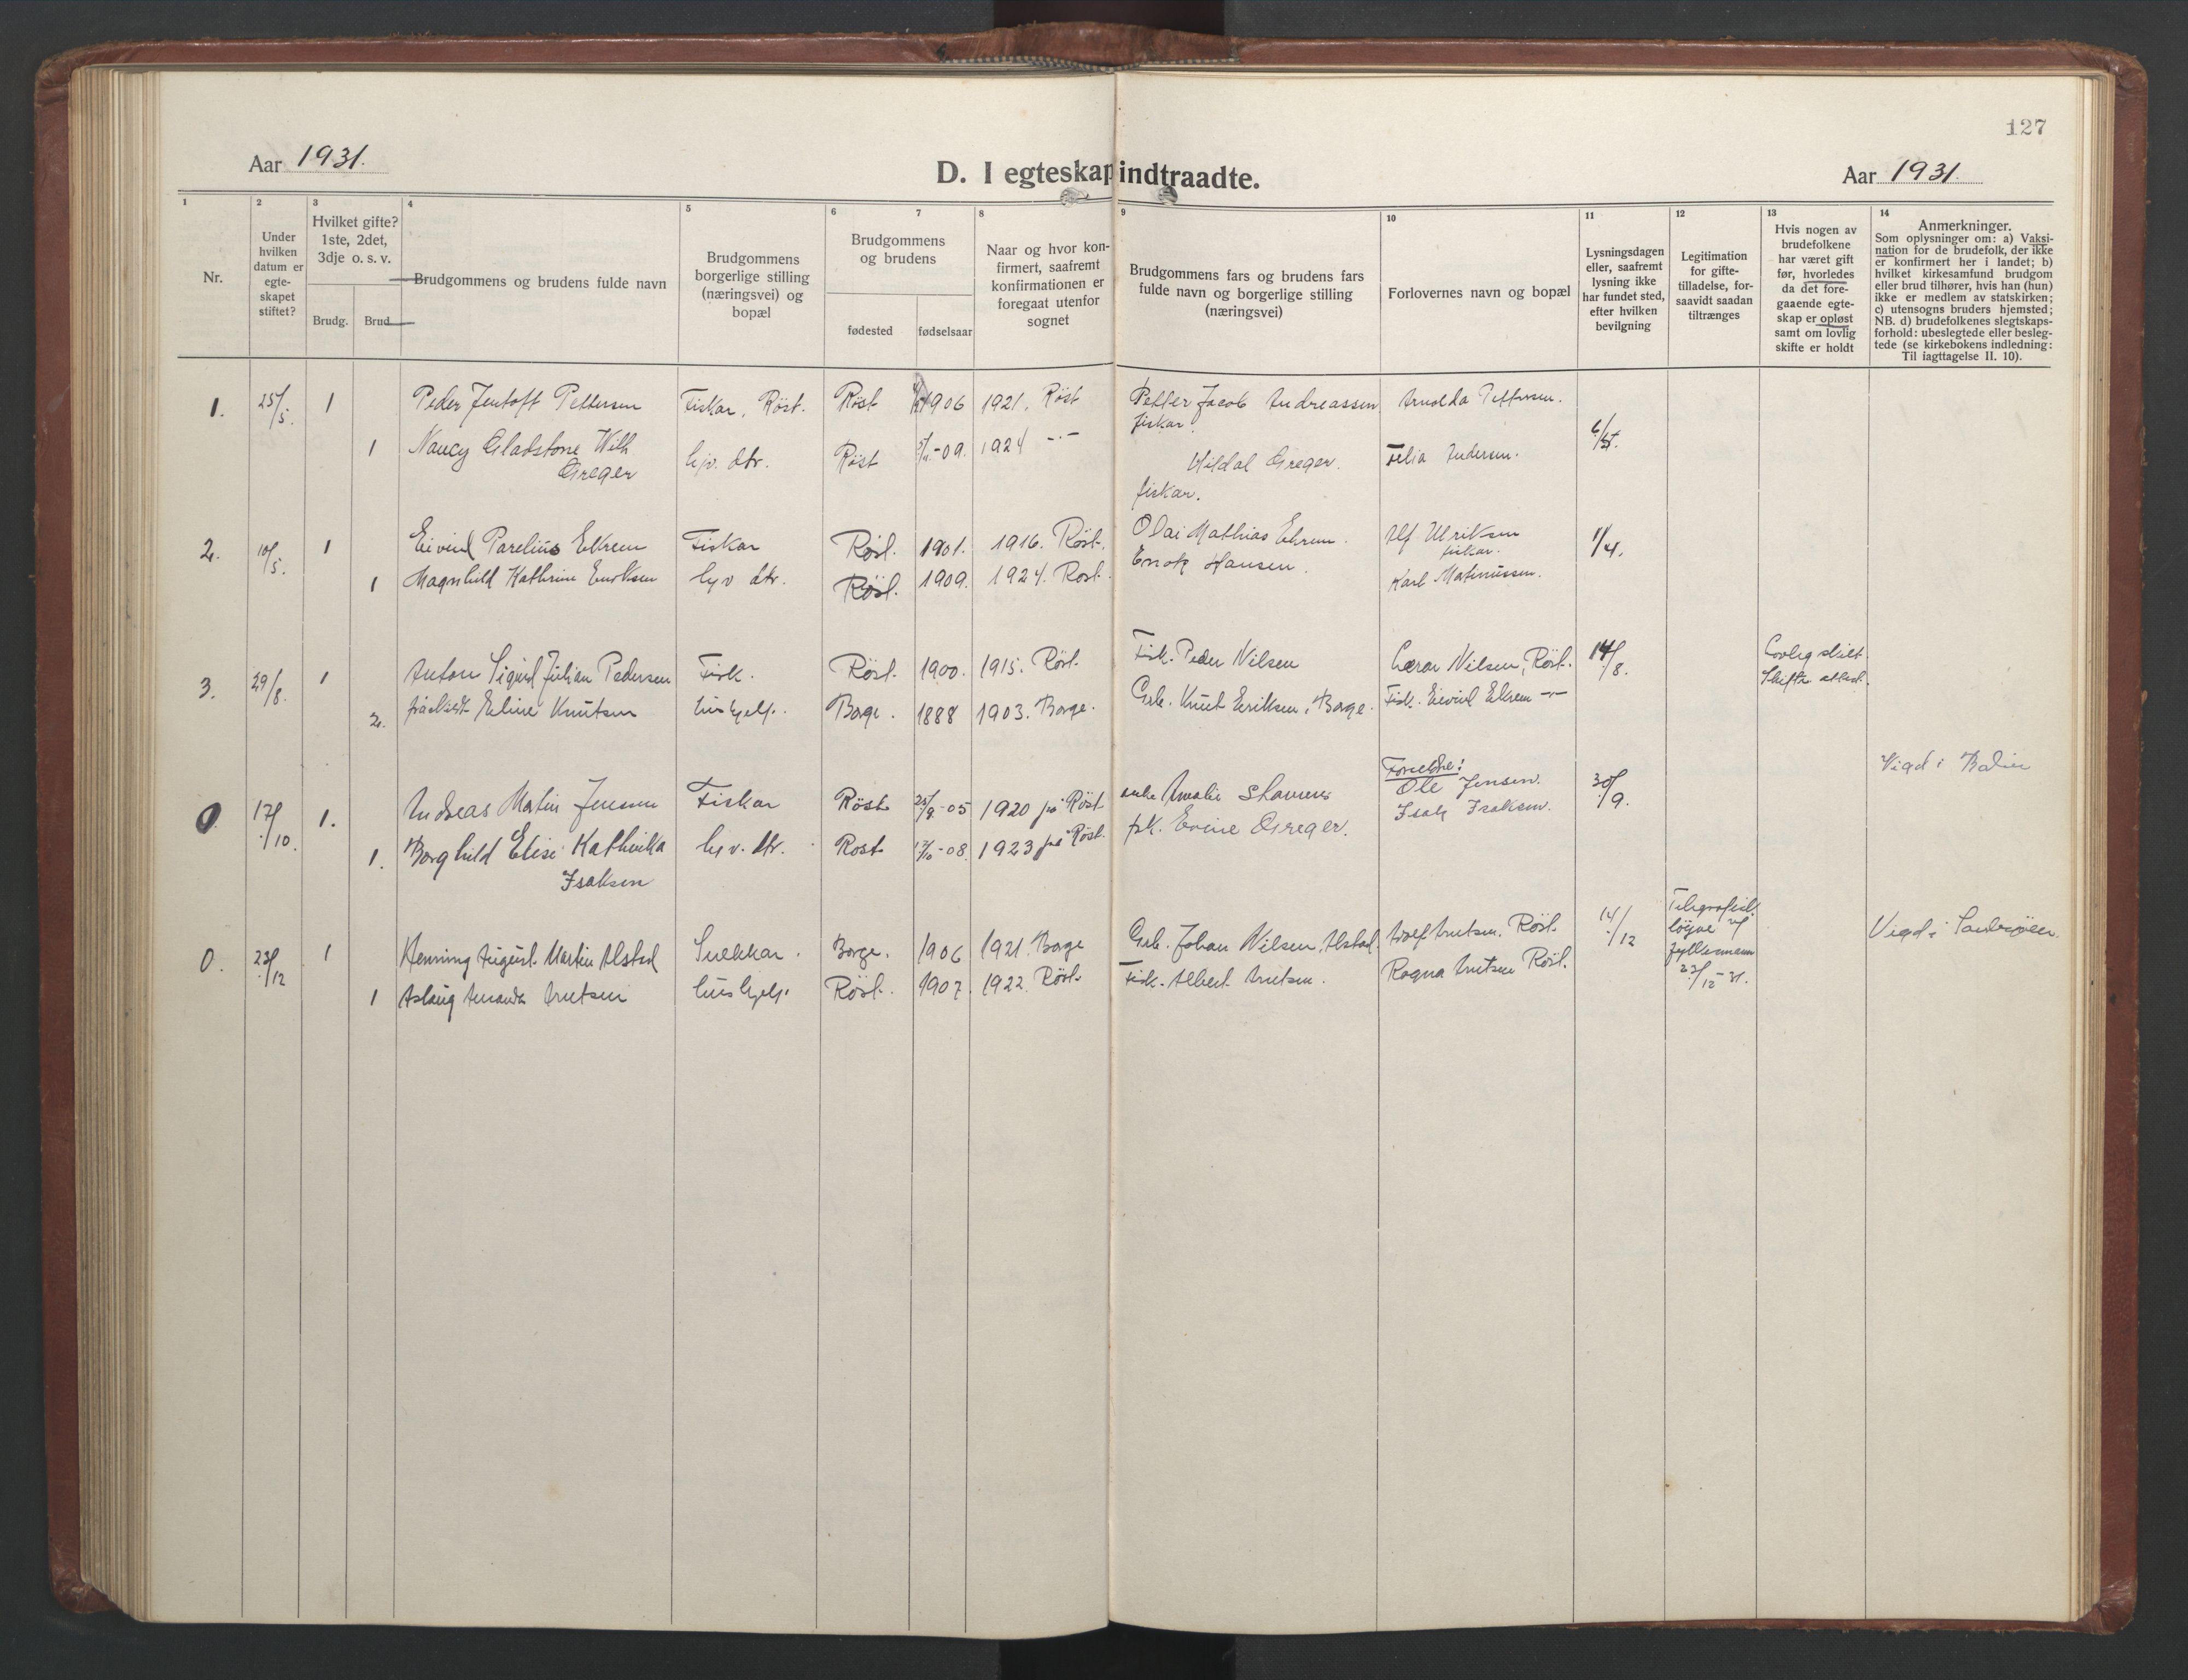 127
Aar 1931.
D. I egteskap indtraadte.
Aar 1931.
1 2 3 4 5 6 7 8 9 10 11 12 13 14
Nr.
Under
hvilken
datum er
egte-
skapet
stiftet?
Hvilket gifte?
1ste, 2det,
3dje o. s. v.
Brudg.
Brud
Brudgommens og brudens fulde navn
Brudgommens
borgerlige stilling
(næringsvei) og
bopæl
Brudgommens
og brudens
fødested
fødselsaar
Naar og hvor kon-
firmert, saafremt
konfirmationen er
foregaat utenfor
sognet
Brudgommens fars og brudens fars
fulde navn og borgerlige stilling
(næringsvei)
Forlovernes navn og bopæl
Lysningsdagen
eller, saafremt
lysning ikke
har fundet sted,
efter hvilken
bevilgning
Legitimation
for gifte-
tilladelse, for-
saavidt saadan
tiltrænges
Hvis nogen av
brudefolkene
har været gift
før, hvorledes
da det fore-
gaaende egte-
skap er opløst
samt om lovlig
skifte er holdt
Anmerkninger.
Som oplysninger om: a) Vaksi-
nation for de brudefolk, der ikke
er konfirmert her i landet; b)
hvilket kirkesamfund brudgom
eller brud tilhører, hvis han (hun)
ikke er medlem av statskirken;
c) utensogns bruders hjemsted;
NB. d) brudefolkenes slegtskaps-
forhold: ubeslegtede eller besleg-
tede (se kirkebokens indledning:
Til iagttagelse II. 10).
1. 25/5. 1 Peder Jentoft Pettersen Fiskar, Röst. Röst 1906 1921. Röst Petter Jacob Andreassen Arnolda Pettersen.
fiskar.
1 Nancy Gladstone Wilh hjv. dtr. Röst -09. 1924 -"- Hildal Greger. Felia Andersen.
Greger
fiskar.
2. 10/5. 1 Eivind Parelius Ekrem Fiskar Röst. 1901. 1916. Röst. Olai Mathias Ekrem. Alf Ulriksen
fiskar.
1 Magnhild Kathrine Enoksen hjv dtr. Röst. 1909. 1924. Röst. Enok Hansen. Karl Matinussen.
3. 29/8. 1 Anton Sigurd Julian Pedersen Fisk. Röst. 1900. 1915. Röst. Fisk. Peder Nilsen Nilsen, Röst. 14/8. Lovlig skilt.
2. fraskilt Eeline Knutsen hushjelp. Borge. 1888 1903. Borge. Grb. Knut Eriksen, Borge. Fisk. Eivind Ekrem -"- Skifte attest.
0. 17/10. 1. Andreas Martin Jensen Fiskar Röst 25/9-05 1920 på Röst enke Amalie Foreldre:
Ole Jensen. 30/9. Vigd i Bodin
1. Borghild Elise Kathinka hjv. dtr. Röst -08. 1923 på Röst. frk. Evine Greger. Isak Isaksen.
Isaksen
0. 23/12 1 Henning August Martin Alstad Snekkar. Borge. 1906 1921. Borge Grb. Johan Nilsen Alstad. Adolf Arntsen, Röst. 14/12 Telegrafisk
löyve
fylkesmann
23/12-31. Vigd i
1 Aslaug Amanda Arntsen hushjelp. Röst. 1907. 1922. Röst. Fisk. Albert Arntsen. Ragna Arntsen Röst.